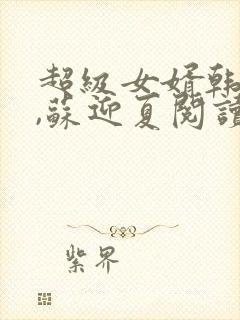 超級女婿韩
,蘇迎夏閱讀
紫界